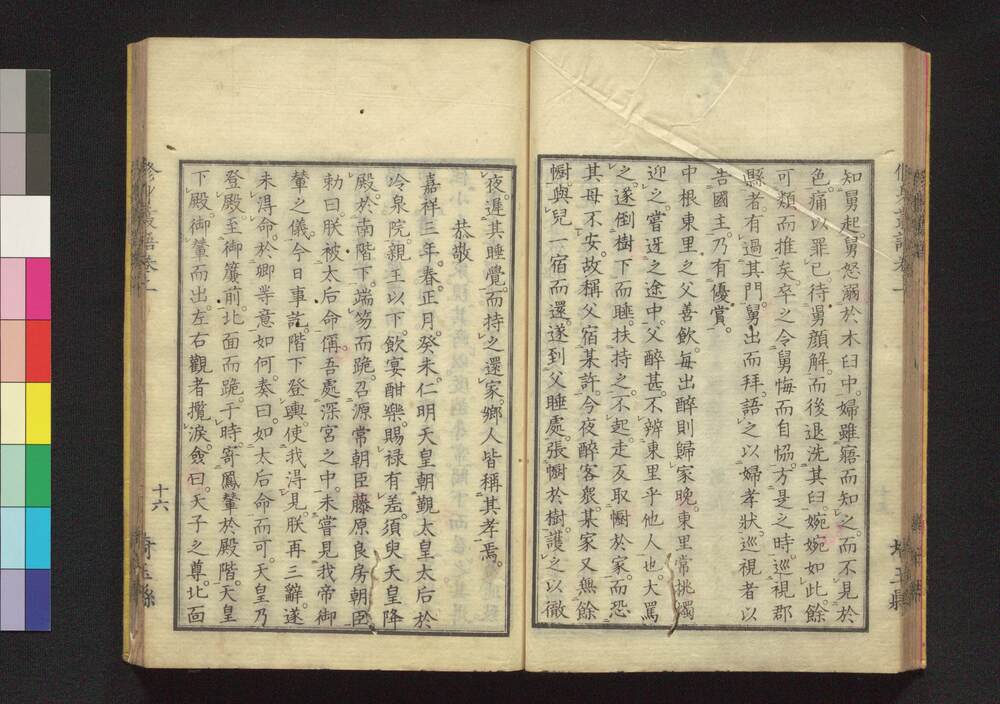 知舅起。舅怒溺於木臼中。婦雖寤而知之。而不見於
色。痛以罪已。待舅顏解。而後退洗其臼。婉婉如此。餘
可類而推矣。卒之令舅悔而自恊。方是之時。巡視郡
縣者。有過其門。舅出而拜。語之以婦孝狀。巡視者以
告國主。乃有優賞。
中根東里之父善飲。每出醉則歸家晚。東里常挑燭
迎之。嘗迓之途中。父醉甚。不辨東里乎他人也。大罵
之。遂倒樹下而睡。扶持之。不起。走反取幮於家。而恐
其母不安。故稱父宿某許。今夜醉客衆。某家又無餘
幮。與兒一宿而還。遂到父睡處。張幮於樹。護之以徹
夜。遲其睡覺。而持之還家。鄉人皆稱其孝焉。
恭敬
嘉祥三年。春。正月。癸未。仁明天皇朝覲太皇太后於
冷泉院。親王以下。飲宴酣樂。賜祿有差。須臾天皇降
殿。於南階下。端笏而跪。召源常朝臣藤原良房朝臣
勅曰。朕被太后命偁。吾處深宮之中。未嘗見我帝御
輦之儀。今日事訖。階下登輿。使我得見。朕再三辭。遂
未得命。於卿等意如何。奏曰。如太后命而可。天皇乃
登殿。至御簾前。北面而跪。于時。寄鳳輦於殿階。天皇
下殿。御輦而出。左右觀者攬淚。僉曰。天子之尊。北面
十六